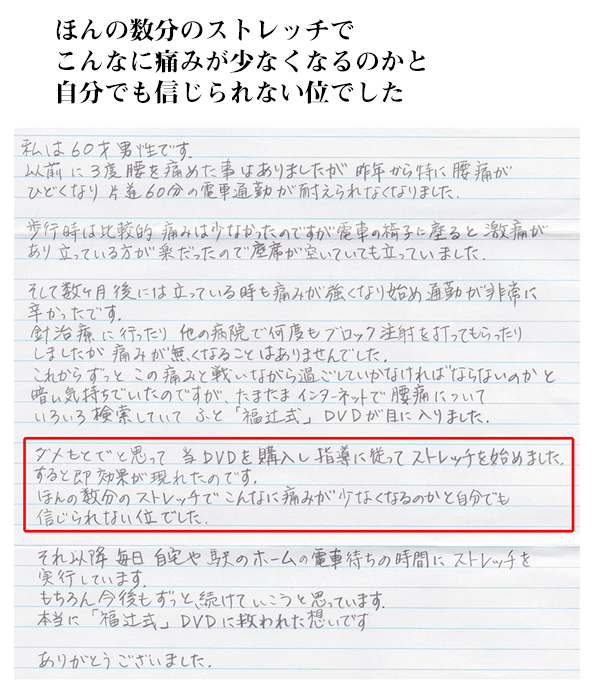 ほんの数分のストレッチで
こんなに痛みが少なくなるのかと
自分でも信じられない位でした
私は60才男性です.
以前に3度腰を痛めた事はありましたが昨年から特に腰痛が
ひどくなり片道60分の電車通勤が耐えられなくなりました.
歩行時は比較的痛みは少なかったのですが電車の椅子に座ると激痛が
あり立っている方が楽だったので座席が空いていても立っていました.
そして数ヶ月後には立っている時も痛みが強くなり始め通勤が非常に
辛かったです.
針治療に行ったり他の病院で何度もブロック注射を打ってもらったり
しましたが痛みが無くなることはありませんでした.
これからずっとこの痛みと戦いながら過ごしていかなければならないのかと
暗い気持ちでいたのですが、たまたまインターネットで腰痛について
いろいろ検索していてふと「福辻式」DVDが目に入りました.
ダメもとでと思って当DVDを購入し指導に従ってストレッチを始めました.
すると即効果が現れたのです.
ほんの数分のストレッチでこんなに痛みが少なくなるのかと自分でも
信じられない位でした.
それ以降毎日自宅や駅のホームの電車待ちの時間にストレッチを
実行しています.
もちろん今後もずっと続けていこうと思っています.
本当に「福辻式」DVDに救われた想いです
ありがとうございました.